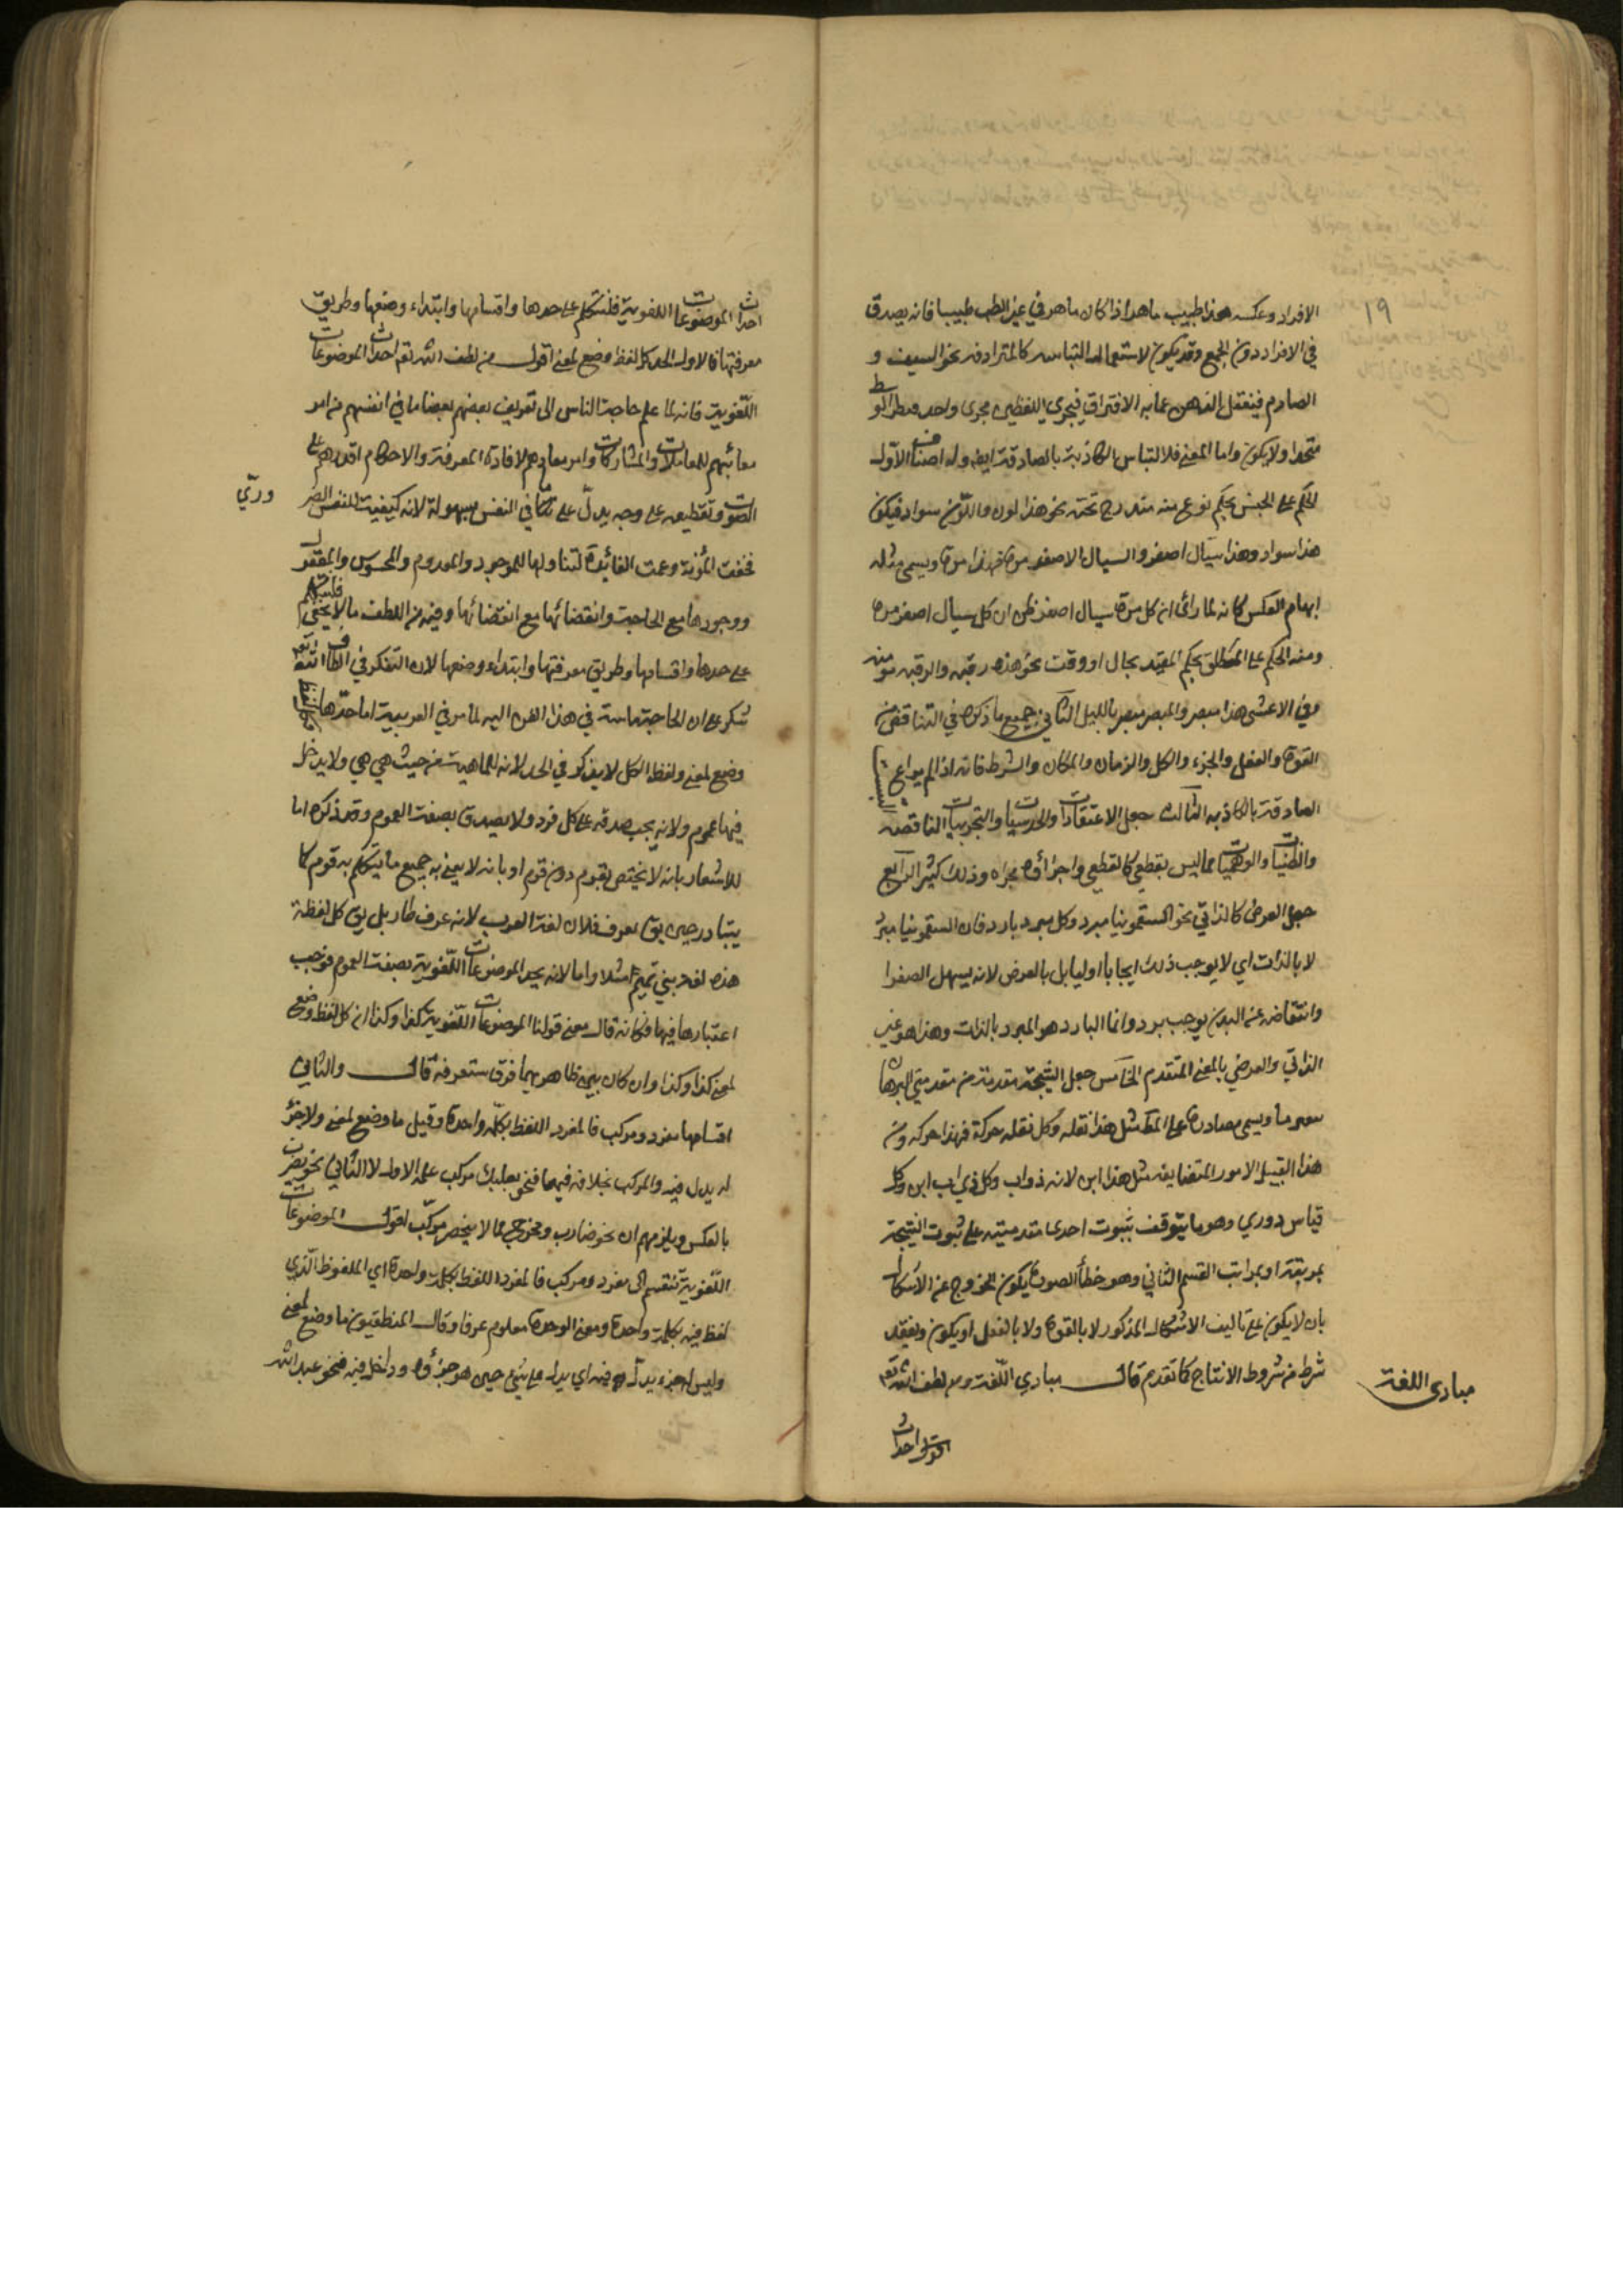 ١٩
الافراد وعكسه هذا طبيب ماهر اذا كان ماهر في غير الطب طبيبا فانه يصدق
في الافراد دون الجمع وقد يكون لاستعمال المتباينة كالمترادفة نحو السيف و
الصارم فيغفل الذهن عما به الافتراق فيجري اللفظين مجرى واحد فيظن الوسط
متحدا ولا يكون واما المعنى فلالتباس الكاذبة بالصادقة ايضا وله اصناف الاول
الحكم على الجنس بحكم نوع منه مندرج تحته نحو هذا لون واللون سواد فيكون
هذا سواد وهذا سيال اصفر والسيال الاصفر مرة فهذا مرة ويسمى مثله
ايهام العكس كانه لما رأى ان كل مرة سيال اصفر ظن ان كل سيال اصفر مرة
ومنه الحكم على المطلق بحكم المقيد بحال او وقت نحو هذه رقبة والرقبة مؤمنة
وفي الاعشى هذا مبصر والمبصر مبصر بالليل الثاني جميع ما ذكره في التناقض من
القوة والفعل والجزء والكل والزمان والمكان والشرط فانه اذا لم يراع التبس
الصادقة بالكاذبة الثالث جعل الاعتقادات والحدسيات والتجربيات الناقصة
والظنيات والوهميات مما ليس بقطعي كالقطعي واجراؤه مجراه وذلك كثير الرابع
جعل العرضي كالذاتي نحو السقمونيا مبرد وكل مبرد بارد فان السقمونيا مبرد
لا بالذات اي لا يوجب ذلك ايجابا اوليا بل بالعرض لانه يسهل الصفرا
وانتقاضه عن البدن يوجب بردا وانما البارد هو المبرد بالذات وهذا هو غير
الذاتي والعرضي بالمعنى المتقدم الخامس جعل النتيجة مقدمة من مقدمتي البرهان
بتغير ما ويسمى مصادرة على المط مثل هذا نقله وكل نقله حركة فهذا حركة ومن
هذا القبيل الامور المتضايفة مثل هذا ابن لانه ذو اب وكل ذي اب ابن وكل
قياس دوري وهو ما يتوقف ثبوت احدى مقدمتيه على ثبوت النتيجة
بمرتبة او بمراتب القسم الثاني وهو خطأ الصورة يكون الخروج عن الاشكال
بان لا يكون على تاليف الاشكال المذكور لا بالقوة ولا بالفعل او يكون وبفقد
شرط من شروط الانتاج كما تقدم قال مبادي اللغة ومن لطف الله تعالى
مبادى اللغة
اقول احداث
احداث الموضوعات اللغوية فلنتكلم على حدها واقسامها وابتداء وضعها وطريق
معرفتها فالاول الحد كل لفظ وضع لمعنى اقول من لطف الله تعه احداث الموضوعات
اللغوية فانه لما علم حاجة الناس الى تعريف بعضهم بعضا ما في انفسهم من امر
معائشهم للمعاملات والمشاركات وامر معادهم لافادة المعرفة والاحكام اقدرهم على
الصوت وتقطيعه على وجه يدل على ما في النفس بسهولة لانه كيفية للنفس الضر
وريّ
فخفت المؤنة وعمت الفائدة لتناولها للموجود والمعدوم والمحسوس والمعقول
ووجودها مع الحاجة وانقضائها مع انقضائها وفيه من اللطف ما لا يخفى فلنتكلم
على حدها واقسامها وطريق معرفتها وابتداء وضعها لان التفكر في الطاف الله تعه
شكر على ان الحاجة ماسة في هذا الفن اليه لما مر في العربية اما حدها كل لفظ
وضع لمعنى ولفظ الكل لا يذكر في الحد لانه للماهية من حيث هي هي ولا يدخل
فيها عموم ولانه يجب صدقه على كل فرد ولا يصدق بصفة العموم وقد ذكره اما
للاشعار بانه لا يختص بقوم دون قوم او بانه لا يعني به جميع ما يتكلم به قوم كما
يتبادر حين يق يعرف فلان لغة العرب لانه عرف طار بل يق كل لفظة
هذه لغة بني تميم مثلا واما لانه يحد الموضوعات اللغوية بصفة العموم فوجب
اعتبارها فيها فكانه قال معنى قولنا الموضوعات اللغوية كذا وكذا ان كل لفظ وضع
لمعنى كذا وكذا وان كان بين ظاهريهما فرق ستعرفه قال والثاني
اقسامها مفرد ومركب فالمفرد اللفظ بكلمة واحدة وقيل ما وضع لمعنى ولا جزء
له يدل فيه والمركب بخلافه فيهما فنحو بعلبك مركب على الاول لا الثاني نحو يضرب
بالعكس ويلزمهم ان نحو ضارب ومخرج مما لا ينحصر مركب اقول الموضوعات
اللغوية تنقسم الى مفرد ومركب فالمفرد اللفظ بكلمة واحدة اي الملفوظ الذي
لفظ فيه بكلمة واحدة ومعنى الوحدة معلوم عرفا وقال المنطقيون ما وضع لمعنى
وليس له جزء يدل فيه اي يدل على شيء حين هو جزؤه وداخل فيه فنحو عبد الله